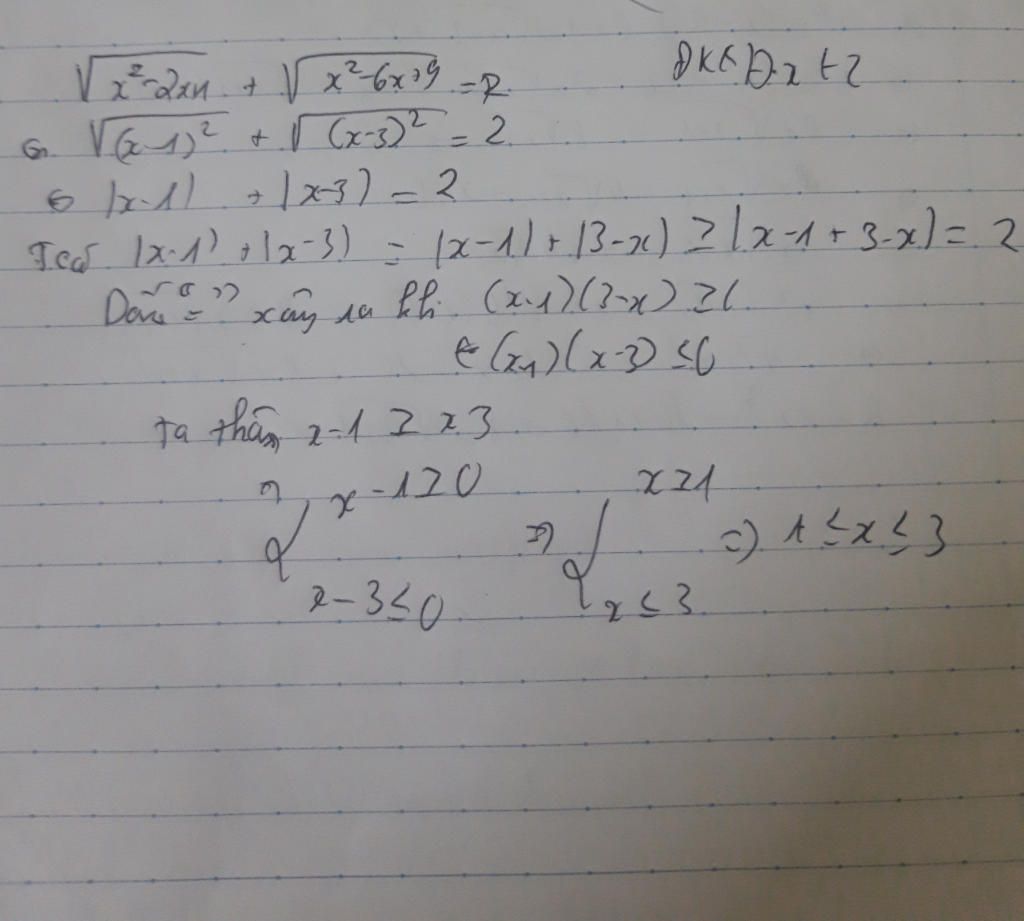 √(x²-2x+1) + √(x²-6x+9) = 2 ĐKXĐ x ∈ R
⇔ √((x-1)²) + √((x-3)²) = 2
⇔ |x-1| + |x-3| = 2
Ta có |x-1| + |x-3| = |x-1| + |3-x| ≥ |x-1+3-x| = 2
Dấu "=" xảy ra khi (x-1)(3-x) ≥ 0
⇔ (x-1)(x-3) ≤ 0
Ta thấy x-1 ≥ x-3
⇒ { x-1 ≥ 0 ⇒ { x ≥ 1 ⇒ 1 ≤ x ≤ 3
x-3 ≤ 0 x ≤ 3